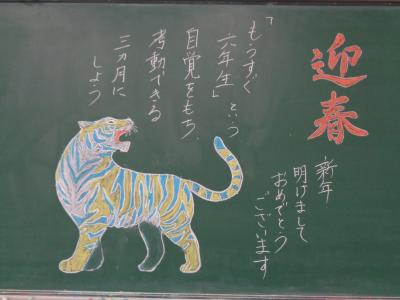 迎春
新年
明けまして
おめでとう
ございます
「もうすぐ
六年生」という
自覚をもち、
考動できる
三ヵ月に
しよう